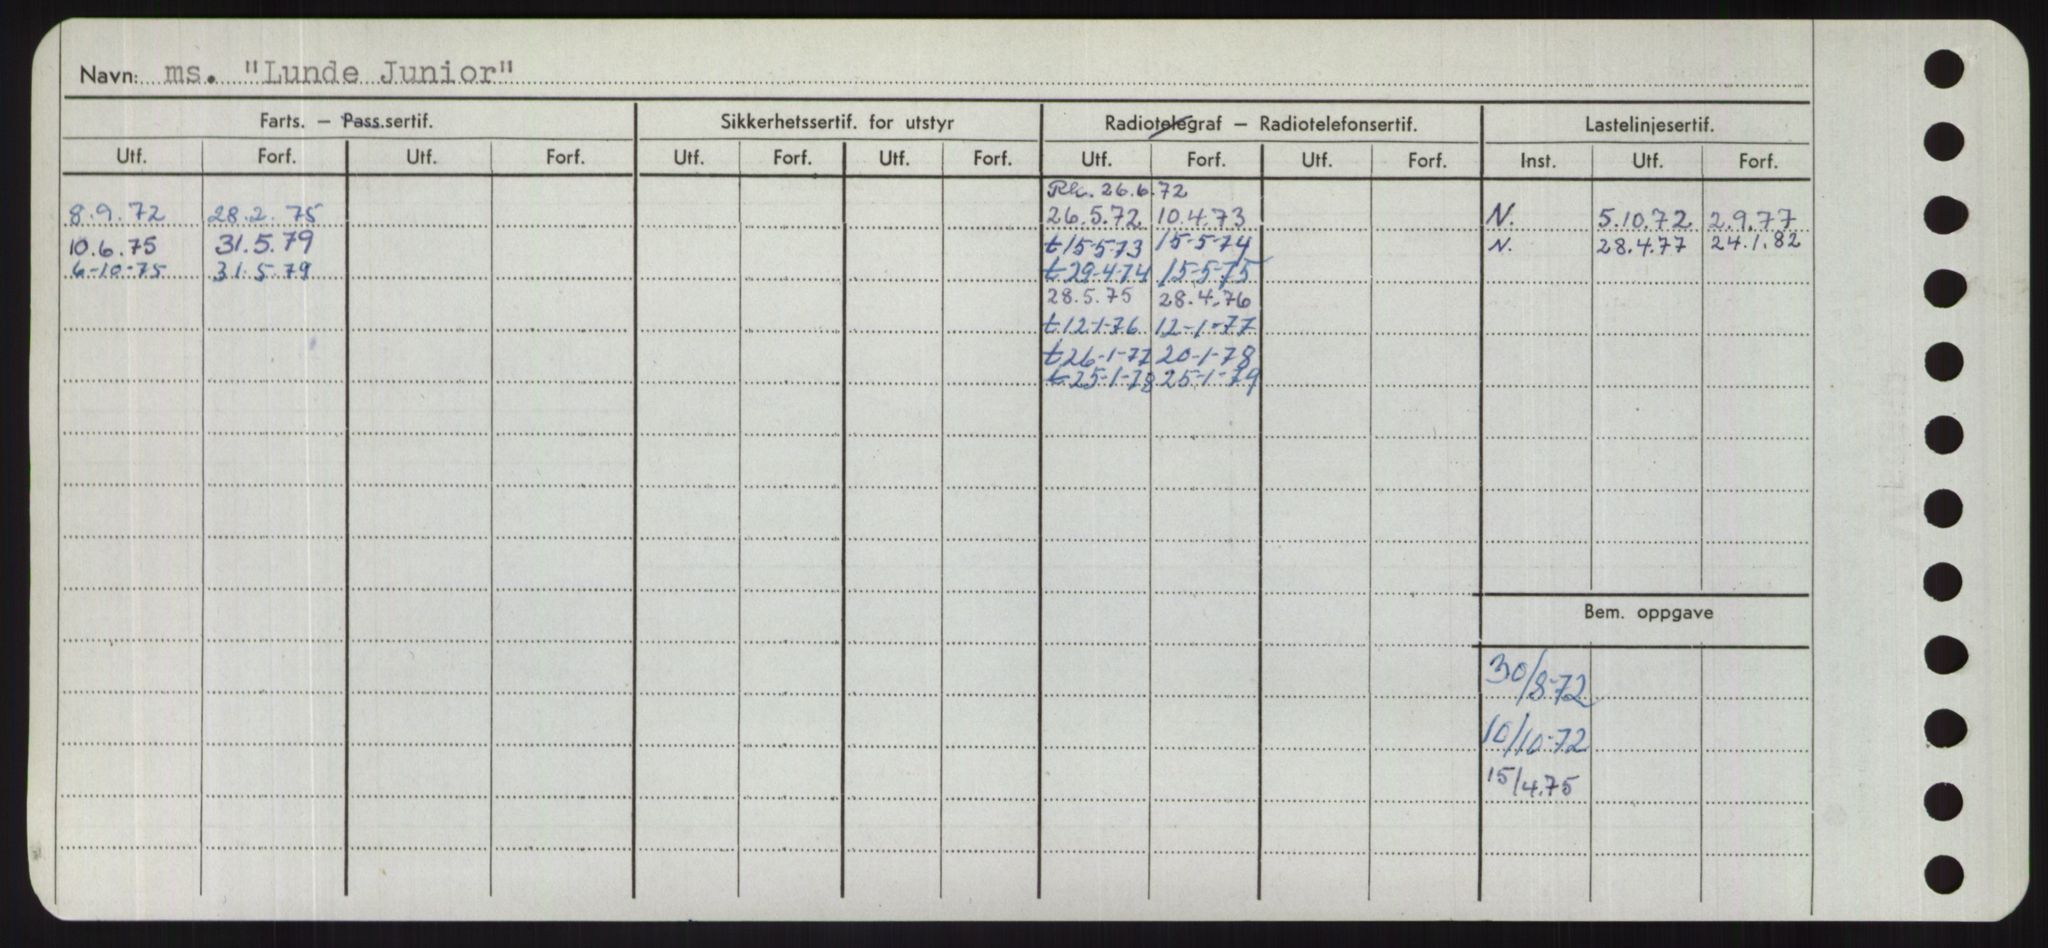 Navn: ms. "Lunde Junior"
Farts. — Pass.sertif. Sikkerhetssertif. for utstyr Radiotelegraf — Radiotelefonsertif. Lastelinjesertif.
Utf. Forf. Utf. Forf. Utf. Forf. Utf. Forf. Utf. Forf. Utf. Forf. Inst. Utf. Forf.
26.6.72
8.9.72 28.2.75 26.5.72 10.4.73 N. 5.10.72 2.9.77
10.6.75 31.5.79 t 15-5-73 15-5-74 N. 28.4.77 24.1.82
6-10-75 31.5.79 t 29-4-74 15-5-75
28.5.75 28.4.76
t 12-1-76 12-1-77
t 26-1-77 20-1-78
t 25-1-78 25-1-79
Bem. oppgave
30/8-72
10/10-72
15/4.75